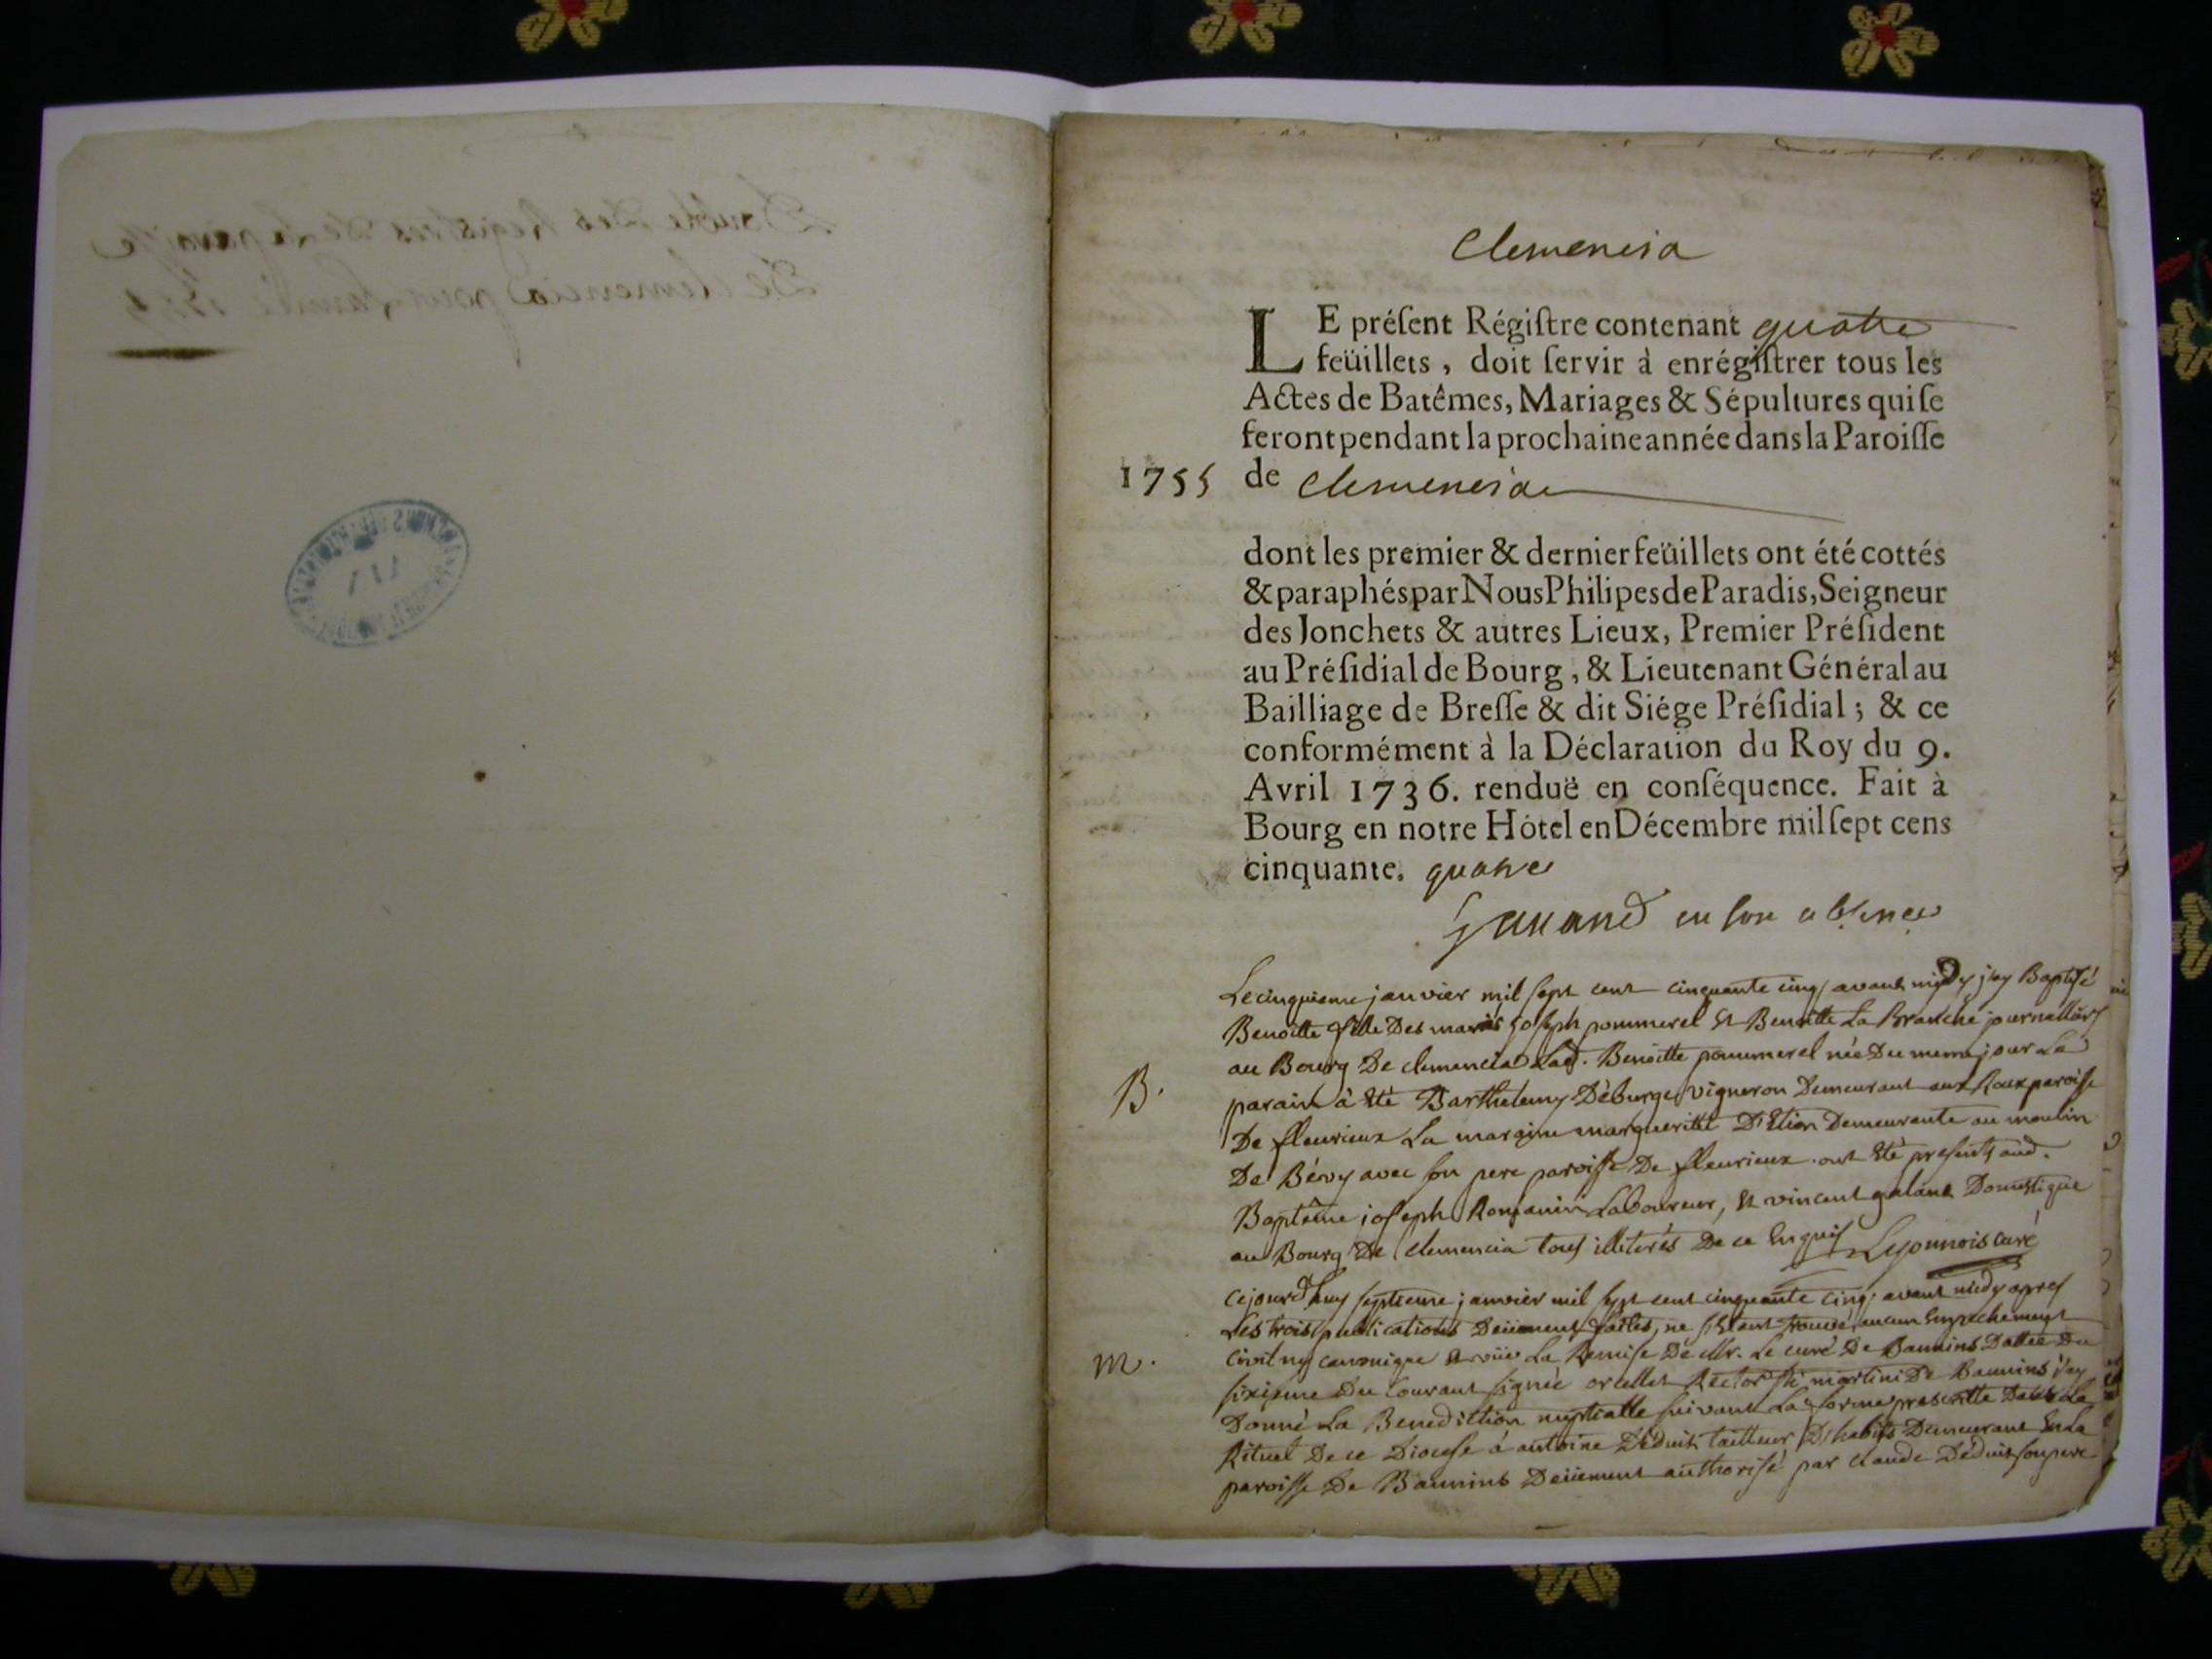 Double des Registres de la paroisse
De Clemencia pour
Clemencia
LE préſent Régiſtre contenant quatre
feüillets, doit ſervir à enrégiſtrer tous les
Actes de Batêmes, Mariages & Sépultures qui ſe
feront pendant la prochaine année dans la Paroiſſe
1755 de Clemencia
dont les premier & dernier feüillets ont été cottés
& paraphés par Nous Philipes de Paradis, Seigneur
des Jonchets & autres Lieux, Premier Préſident
au Préſidial de Bourg, & Lieutenant Général au
Bailliage de Breſſe & dit Siége Préſidial ; & ce
conformément à la Déclaration du Roy du 9.
Avril 1736. renduë en conſéquence. Fait à
Bourg en notre Hôtel en Décembre mil ſept cens
cinquante. quatre
en son absence
Le cinquieme janvier mil sept cent cinquante cinq avant midy j'ay Baptisé
Benoitte fille des mariés joseph pommerel et Benoitte La Branche journalliers
au Bourg De clemencia Lad. Benoitte pommerel née Du meme jour Le
B. parain à été Barthelemy Déburge vigneron Demeurant aux Roux paroisse
De fleurieux La maraine margueritte D'Etion Demeurante au moulin
De Bévy avec son pere paroisse De fleurieux. ont été presents aud.
Baptême joseph Romanin Laboureur, et vincent galand Domestique
au Bourg De Clemencia tous illiterés De ce Enquis Lyonnois curé
Cejourd'huy septieme janvier mil sept cent cinquante cinq avant midy apres
Les trois publications Deüement faites, ne s'étant trouvé aucun Empechement
m. civil ny canonique et vüe La Remise De Mr. Le curé De Baunins Dattée Du
sixieme Du Courant signée orcellet Rector Sti martini De Baunins j'ay
Donné La Benediction nuptialle suivant La forme prescritte Dans Le
Rituel De ce Diocese à antoine Déduit tailleur D'habits Demeurant En La
paroisse De Baunins Deüement authorisé par claude Déduit son pere